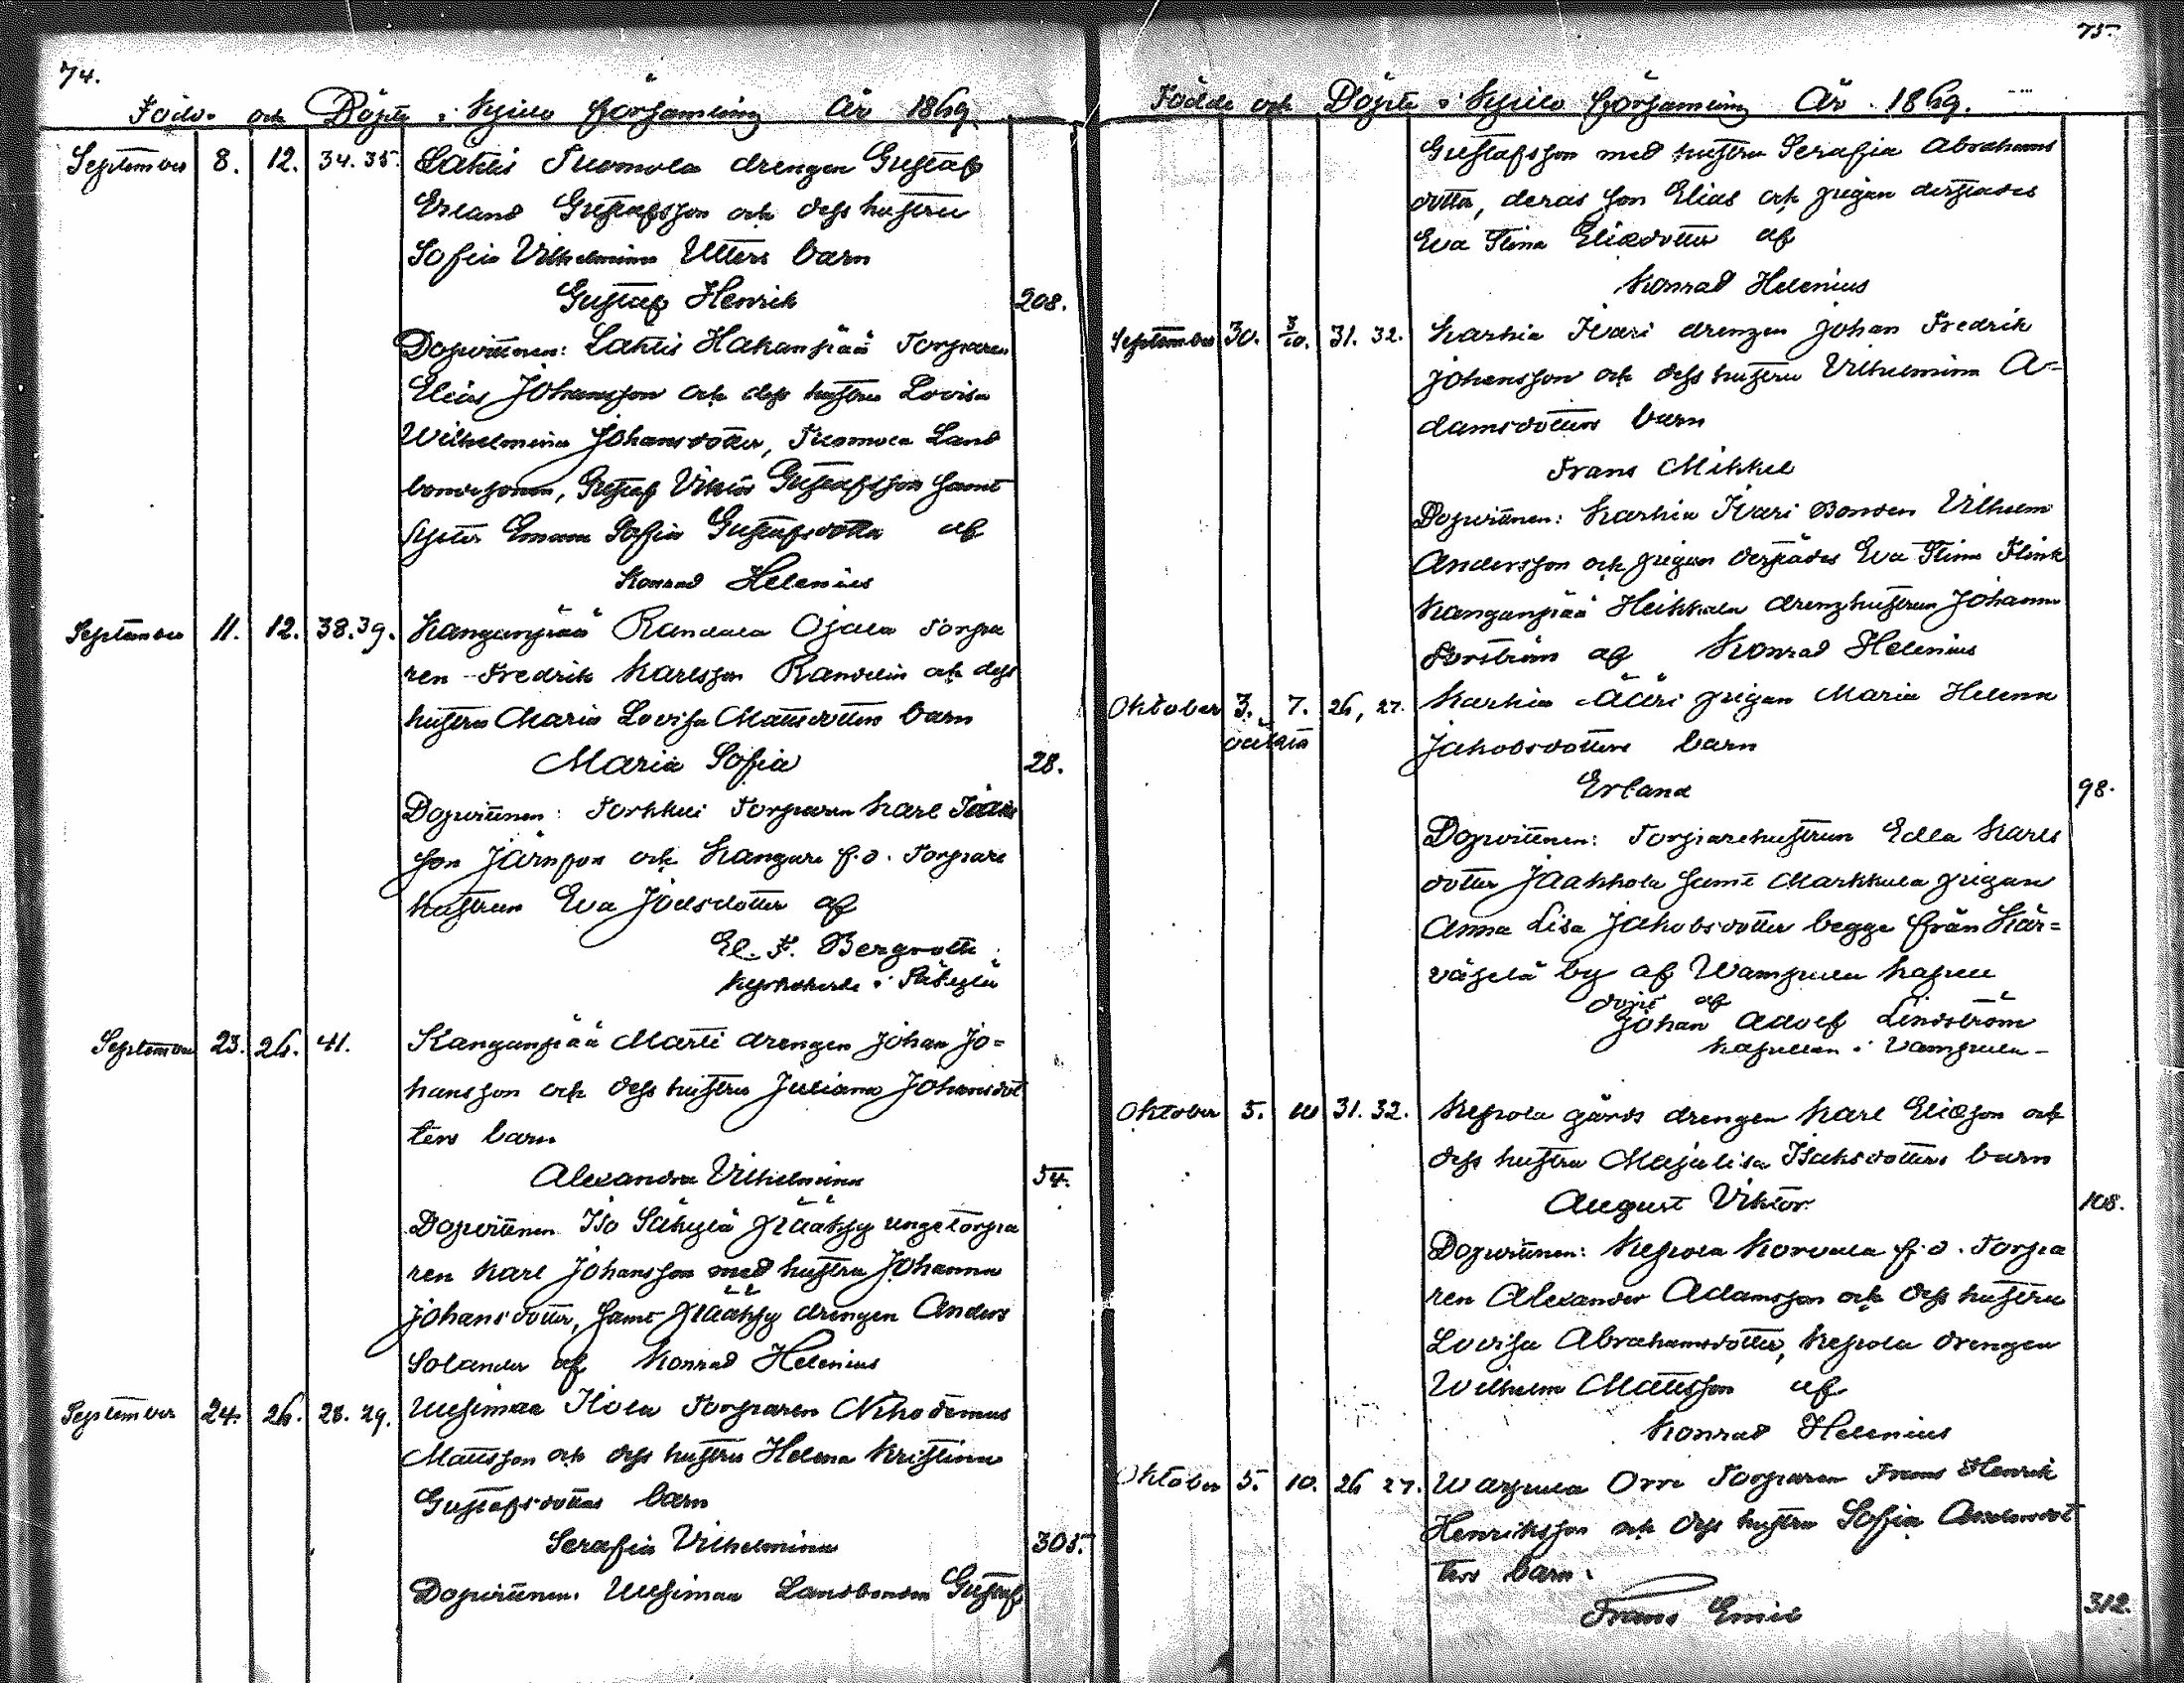 74.
Födde och Döpte i Kjulo församling År 1869
September 8. 12. 34. 35. Lahtis Tuomola drengen Gustaf
Erland Gustafsson och dess hustru
Sofia Vilhelmina Utters barn
Gustaf Henrik 208.
Dopvittnen: Lahtis Hakanpää Torparen
Elias Johansson och dess hustru Lovisa
Wilhelmina Johansdotter, Tuomola Land
bondesonen, Gustaf Viktor Gustafsson samt
Syster Emma Sofia Gustafsdotter af
Konrad Helenius
September 11. 12. 38.39. Kanganpää Randala Ojala Torpa
ren Fredrik Karlsson Randelin och dess
hustru Maria Lovisa Mattsdotters barn
Maria Sofia 28.
Dopvittnen: Torkkui Torparen Karl
son Järnfor och Kangare f.d. Torpare
hustrun Eva Joelsdotter af
El. F. Bergroth
kyrkoherde i Säkylä
September 23. 26. 41. Kanganpää Martti drengen Johan Jo=
hansson och dess hustru Juliana Johansdot
ters barn
Alexandra Vilhelmina 54.
Dopvittnen Iso Säkylä Pläähy unge torpa
ren Karl Johansson med hustru Johanna
Johansdotter, samt Pläähy drengen Anders
Solander af Konrad Helenius
September 24. 26. 28. 29. Uusimaa Ilola Torparen Nikodemus
Mattsson och dess hustru Helena Kristina
Gustafsdotters barn
Serafia Vilhelmina 305.
Dopvittnen: Uusimaa Landbonden Gustaf
75
Födde och Döpte i Kjulo församling År 1869.
Gustafsson med hustru Serafia Abrahams
dotter, deras son Elias och pigan derstädes
Eva Stina Eliedotter af
Konrad Helenius
September 30. 3/10. 31. 32. Karhia Knari drengen Johan Fredrik
Johansson och dess hustru Vilhelmina A=
damsdotters barn
Frans Mikkel
Dopvittnen: Karhia Knari Bonden Vilhelm
Andersson och pigan derstädes Eva Stina Flink
Kanganpää Heikkala drenghustrun Johanna
Forström af Konrad Helenius
Oktober 3. 7. 26, 27. Karhia Ääri pigan Maria Helena
oäkta
Jakobsdotters barn
Erland 98.
Dopvittnen: Torparehustrun Edla Karls
dotter Jaakkola samt Markkula pigan
Anna Lisa Jakobsdotter begge från Kär=
väselä by af Wampula kapell
döpt af
Johan Adolf Lindström
kapellan i Vampula -
Oktober 5. 10 31. 32. Kepola gårds drengen Karl Elieson och
dess hustru Majalisa Isaksdotters barn
August Viktor 108.
Dopvittnen: Kepola Korvala f.d. Torpa
ren Alexander Adamsson och dess hustru
Lovisa Abrahamsdotter, Kepola drengen
Wilhelm Mattsson af
Konrad Helenius
Oktober 5. 10. 26 27. Warpula Orre Torparen Frans Henrik
Henriksson och dess hustru Sofia Andersdot
ters barn.
Frans Emil 312.